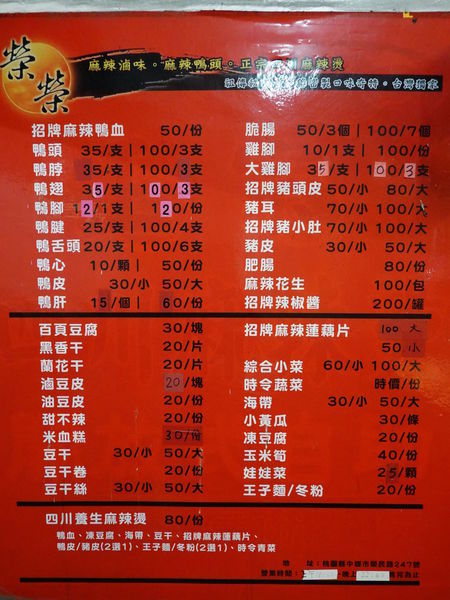 榮榮
麻辣滷味。麻辣鴨頭。正宗 麻辣燙
祖傳 製口味奇特。台灣獨家
招牌麻辣鴨血 50/份
鴨頭 35/支|100/3支
鴨脖 35/支|100/3支
鴨翅 35/支|100/3支
鴨腳 12/1支|120/份
鴨腱 25/支|100/4支
鴨舌頭 20/支|100/6支
鴨心 10/顆|50/份
鴨皮 30/小 50/大
鴨肝 15/個|60/份
脆腸 50/3個|100/7個
雞腳 10/1支|100/份
大雞腳 35/支|100/3支
招牌豬頭皮 50/小 80/大
豬耳 70/小 100/大
招牌豬小肚 70/小 100/大
豬皮 30/小 50/大
肥腸 80/份
麻辣花生 100/包
招牌辣椒醬 200/罐
百頁豆腐 30/塊
黑香干 20/片
蘭花干 20/片
滷豆皮 20/塊
油豆皮 20/份
甜不辣 20/份
米血糕 30/份
豆干 30/小 50/大
豆干卷 20/份
豆干絲 30/小 50/大
招牌麻辣蓮藕片 100 大
50 小
綜合小菜 60/小 100/大
時令蔬菜 時價/份
海帶 30/小 50/大
小黃瓜 30/條
凍豆腐 20/份
玉米筍 40/份
娃娃菜 25/顆
王子麵/冬粉 20/份
四川養生麻辣燙 80/份
鴨血、凍豆腐、海帶、豆干、招牌麻辣蓮藕片、
鴨皮/豬皮(2選1)、王子麵/冬粉(2選1)、時令青菜
地 址：桃園縣中壢市榮民路247號
營業時間： 晚上 售完為止